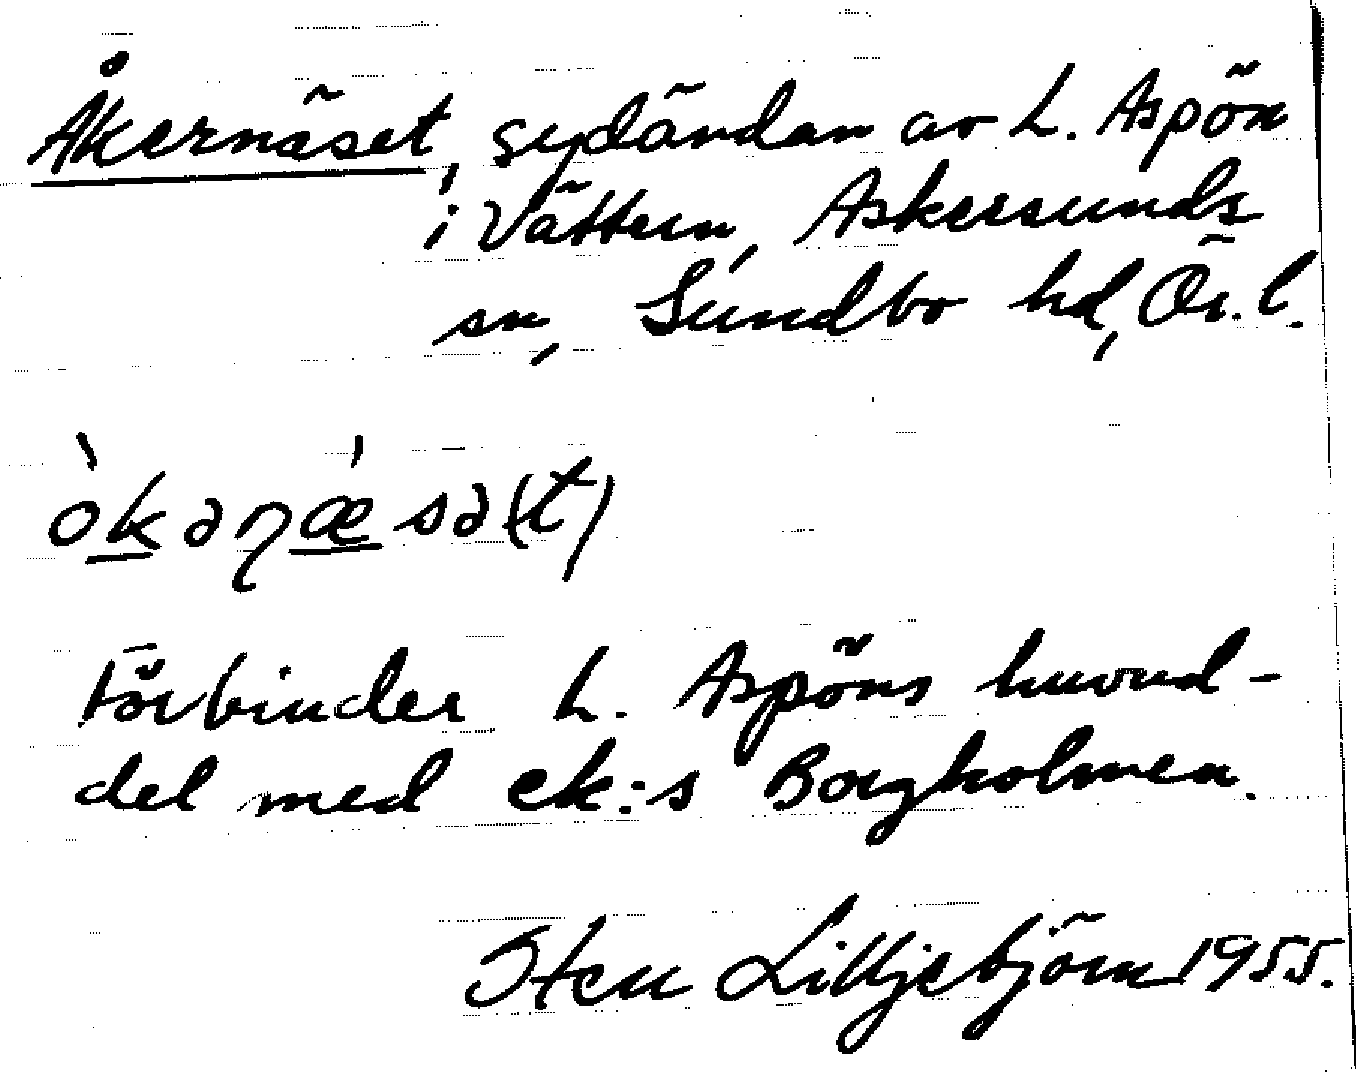 Åkernäset, sydändan av L. Aspön
i Vättern, Askersunds
sn, Sundbo hd, Ör. l.
òkəɳæ̀sə(t)
Förbinder L. Aspöns huvud-
del med ek:s Borgholmen.
Sten Lilljebjörn 1955.